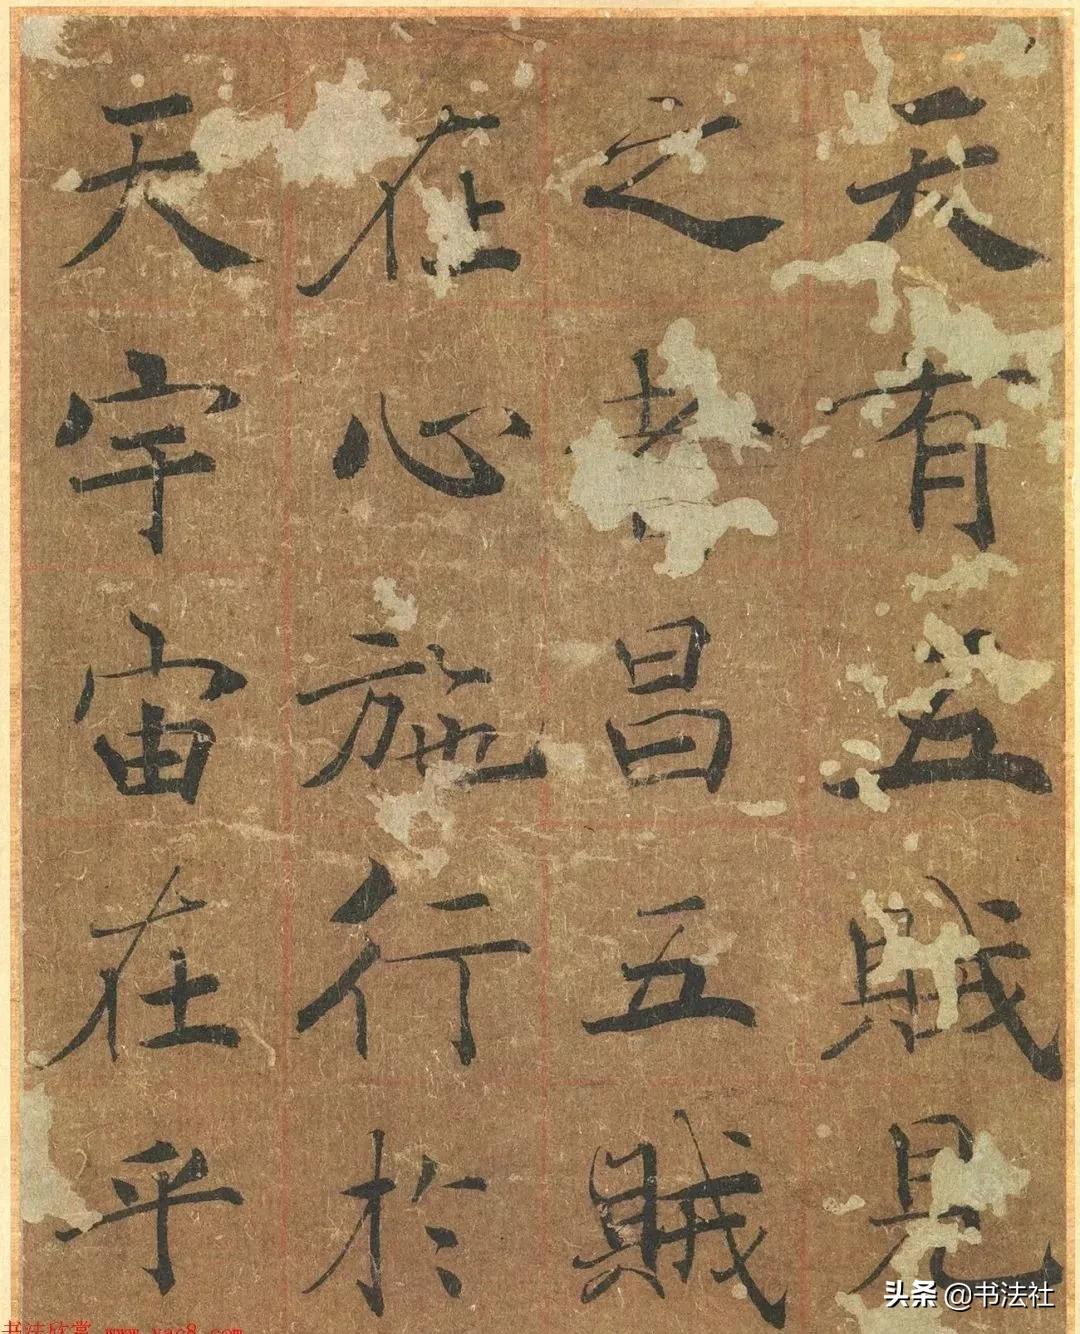 天有五賊見
之者昌五賊
在心施行於
天宇宙在乎
头条 @书法社
书法欣赏 www.yac8.com